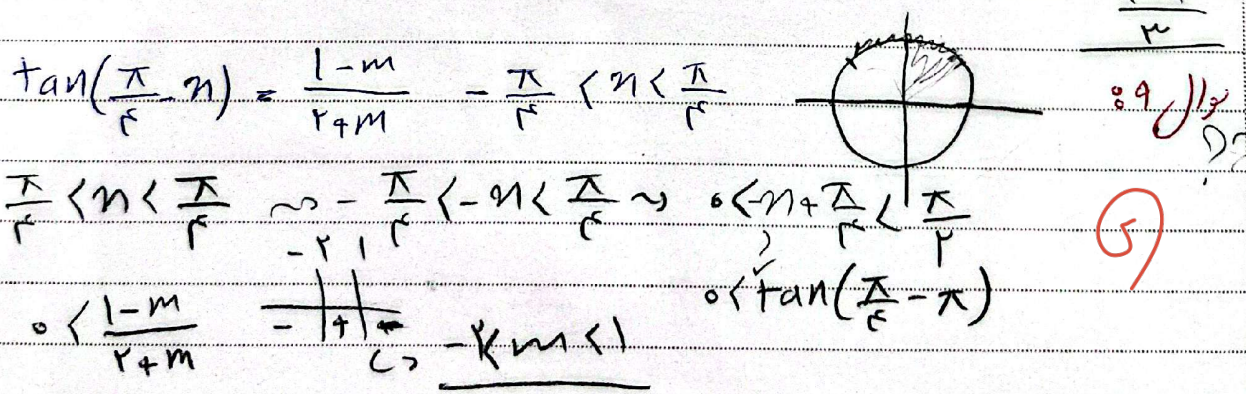 سوال ۹:
tan(π/۴ - x) = (1-m)/(۲+m)   -π/۴ < x < π/۴
π/۴ < x < π/۴ ~> -π/۴ < -x < π/۴ ~> ۰ < -x + π/۴ < π/۲
۰ < tan(π/۴ - π)
-۲ 1
۰ < (1-m)/(۲+m)   - + -   -۲ < m < 1